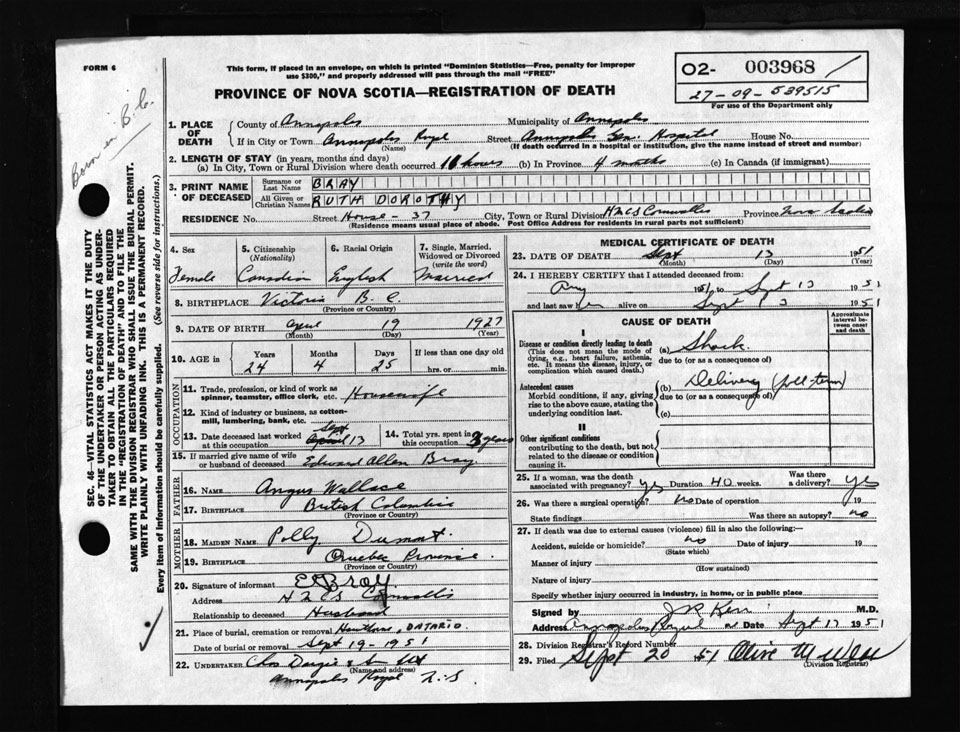 FORM 6
Born in B.C.
This form, if placed in an envelope, on which is printed "Dominion Statistics—Free, penalty for improper
use $300," and properly addressed will pass through the mail "FREE"
PROVINCE OF NOVA SCOTIA—REGISTRATION OF DEATH
O2- 003968
27-09-539515
For use of the Department only
1. PLACE OF DEATH
County of Annapolis Municipality of Annapolis
If in City or Town Annapolis Royal Street Annapolis Gen. Hospital House No.
(Name) (If death occurred in a hospital or institution, give the name instead of street and number)
2. LENGTH OF STAY (in years, months and days)
(a) In City, Town or Rural Division where death occurred 10 hours (b) In Province 4 months (c) In Canada (if immigrant)
3. PRINT NAME OF DECEASED
Surname or Last Name BRAY
All Given or Christian Names RUTH DOROTHY
RESIDENCE No. Street House - 37 City, Town or Rural Division HMCS Cornwallis Province Nova Scotia
(Residence means usual place of abode. Post Office Address for residents in rural parts not sufficient)
4. Sex Female
5. Citizenship (Nationality) Canadian
6. Racial Origin English
7. Single, Married, Widowed or Divorced (write the word) Married
8. BIRTHPLACE Victoria B.C.
(Province or Country)
9. DATE OF BIRTH April 19 1927
(Month) (Day) (Year)
10. AGE in Years Months Days If less than one day old
24 4 25 hrs. or min.
OCCUPATION
11. Trade, profession, or kind of work as
spinner, teamster, office clerk, etc. Housewife
12. Kind of industry or business, as cotton-
mill, lumbering, bank, etc.
13. Date deceased last worked at this occupation Sept 13
14. Total yrs. spent in this occupation 3 years
15. If married give name of wife
or husband of deceased Edward Allen Bray
FATHER
16. NAME Angus Wallace
17. BIRTHPLACE British Columbia
(Province or Country)
MOTHER
18. MAIDEN NAME Polly Dumont
19. BIRTHPLACE Quebec Province
(Province or Country)
20. Signature of informant E Bray
Address HMCS Cornwallis
Relationship to deceased Husband
21. Place of burial, cremation or removal ONTARIO
Date of burial or removal Sept 19-1951
22. UNDERTAKER Chas Dargie & Son Ltd
(Name and address)
Annapolis Royal N.S.
MEDICAL CERTIFICATE OF DEATH
23. DATE OF DEATH Sept 13 1951
(Month) (Day)
24. I HEREBY CERTIFY that I attended deceased from
Aug 1951 to Sept 13 1951
and last saw her alive on Sept 13 1951
CAUSE OF DEATH
Approximate interval between onset and death
I
Disease or condition directly leading to death
(This does not mean the mode of dying, e.g., heart failure, asthenia, etc. It means the disease, injury, or complication which caused death.)
(a) Shock
due to (or as a consequence of)
Antecedent causes
Morbid conditions, if any, giving rise to the above cause, stating the underlying condition last.
(b) Delivery (full-term)
due to (or as a consequence of)
(c)
II
Other significant conditions
contributing to the death, but not related to the disease or condition causing it.
25. If a woman, was the death Was there
associated with pregnancy? yes Duration 40 weeks. a delivery? yes
26. Was there a surgical operation? no Date of operation 19
State findings Was there an autopsy? no
27. If death was due to external causes (violence) fill in also the following:—
Accident, suicide or homicide? no Date of injury 19
(State which)
Manner of injury
(How sustained)
Nature of injury
Specify whether injury occurred in industry, in home, or in public place
Signed by J R Kerr M.D.
Address Annapolis Royal Date Sept 17 1951
28. Division Registrar's Record Number
29. Filed Sept 20 51 Olive M
(Division Registrar)
SEC. 46—VITAL STATISTICS ACT MAKES IT THE DUTY
OF THE UNDERTAKER OR PERSON ACTING AS UNDER-
TAKER TO OBTAIN ALL THE PARTICULARS REQUIRED
IN THE "REGISTRATION OF DEATH" AND TO FILE THE
SAME WITH THE DIVISION REGISTRAR WHO SHALL ISSUE THE BURIAL PERMIT.
WRITE PLAINLY WITH UNFADING INK. THIS IS A PERMANENT RECORD.
Every item of information should be carefully supplied. (See reverse side for instructions.)